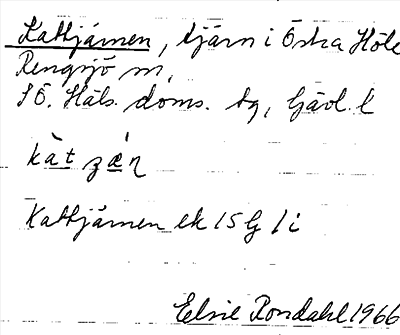 Kattjärnen, tjärn i Östra Höle
Rengsjö sn,
SÖ. Häls. doms. tg, Gävl. l
kàt
Kattjärnen ek 15G 1i
Elsie Rondahl 1966